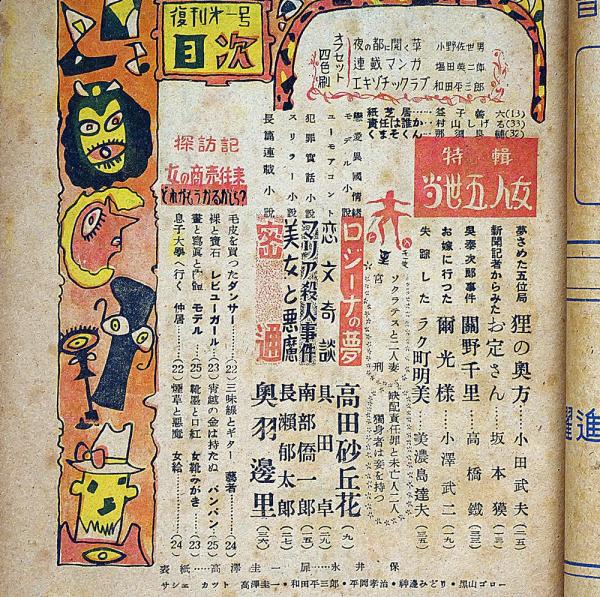 復刊第一号
目次
オフセット四色刷
夜の都に開く華 小野佐世男
連載マンガ 塩田英二郎
エキゾチックラブ 和田平三郎
紙芝居……益子善六(13)
責任は誰か……村山しげる(33)
くまそくん……那須良輔(32)
特輯
当世五人女
夢さめた五位局 狸の奥方 小田武夫(一五)
新聞記者からみた お定さん 坂本獏(一三)
奥泰次郎事件 關野千里 高橋鐵(三三)
お嫁に行つた 爾光様 小澤武二(一九)
失踪した ラク町明美 美濃島達夫(三五)
ソクラテスと二人妻
宮刑
缺配責任罪と未亡人二人
獨身者は妾を持つ
戀愛異國情緒 ロジーナの夢 高田砂丘花(九)
モデル小説
ユーモアコント 恋文奇談 具田卓(五)
犯罪實話小説 マリア殺人事件 南部僑一郎
スリラー小説 美女と悪魔 長瀬郁太郎(二七)
長篇連載小説 密通 奥羽邊里(三六)
探訪記
女の商売往来
どれがもうかるかしら?
毛皮を買つたダンサー……(22)
裸と寶石 レビューガール……(23)
畫と寫真と モデル……(25)
息子大學へ行く 仲居……(22)
三味線とギター 藝者……(24)
宵越の金は持たぬ パンパン……(25)
靴墨と口紅 女靴みがき……(23)
煙草と悪魔 女給……(24)
表紙……高澤圭一 扉……永井保
サシエ カット 高澤圭一・和田平三郎・平岡孝治・神邊みどり・黒山ゴロー
進